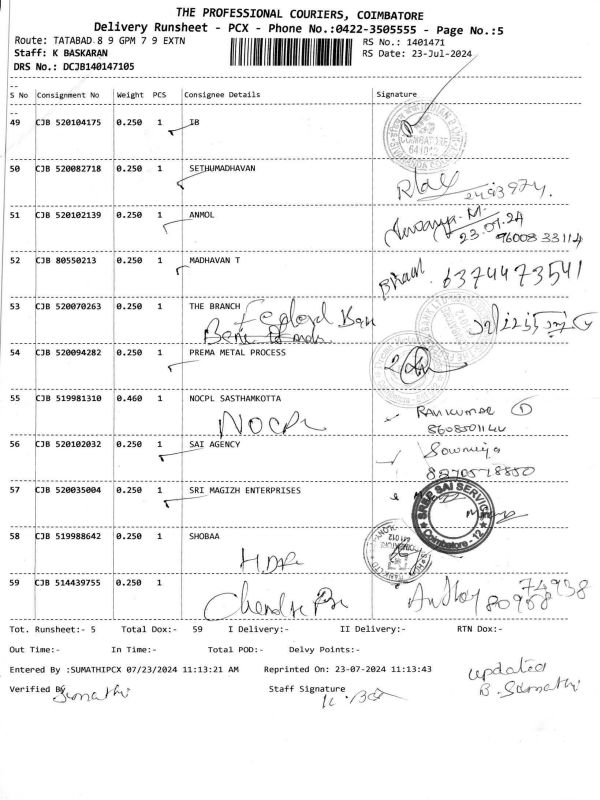 THE PROFESSIONAL COURIERS, COIMBATORE
Delivery Runsheet - PCX - Phone No.:0422-3505555 - Page No.:5
Route: TATABAD 8 9 GPM 7 9 EXTN RS No.: 1401471
Staff: K BASKARAN RS Date: 23-Jul-2024
DRS No.: DCJB140147105
--
S No Consignment No Weight PCS Consignee Details Signature
--
49 CJB 520104175 0.250 1 IB
COIMBATORE
641012
50 CJB 520082718 0.250 1 SETHUMADHAVAN
51 CJB 520102139 0.250 1 ANMOL
23.07.24
96008 33114
52 CJB 80550213 0.250 1 MADHAVAN T
6374473541
53 CJB 520070263 0.250 1 THE BRANCH
54 CJB 520094282 0.250 1 PREMA METAL PROCESS
55 CJB 519981310 0.460 1 NOCPL SASTHAMKOTTA
NOCPL
RAVIKUMAR
56 CJB 520102032 0.250 1 SAI AGENCY
Sowmiya
57 CJB 520035004 0.250 1 SRI MAGIZH ENTERPRISES
SREE SAI SERVICE
Coimbatore - 12
58 CJB 519988642 0.250 1 SHOBAA
59 CJB 514439755 0.250 1
74938
80968
Tot. Runsheet:- 5 Total Dox:- 59 I Delivery:- II Delivery:- RTN Dox:-
Out Time:- In Time:- Total POD:- Delvy Points:-
Entered By :SUMATHIPCX 07/23/2024 11:13:21 AM Reprinted On: 23-07-2024 11:13:43
updated
Verified By Sumathi Staff Signature B. Sumathi